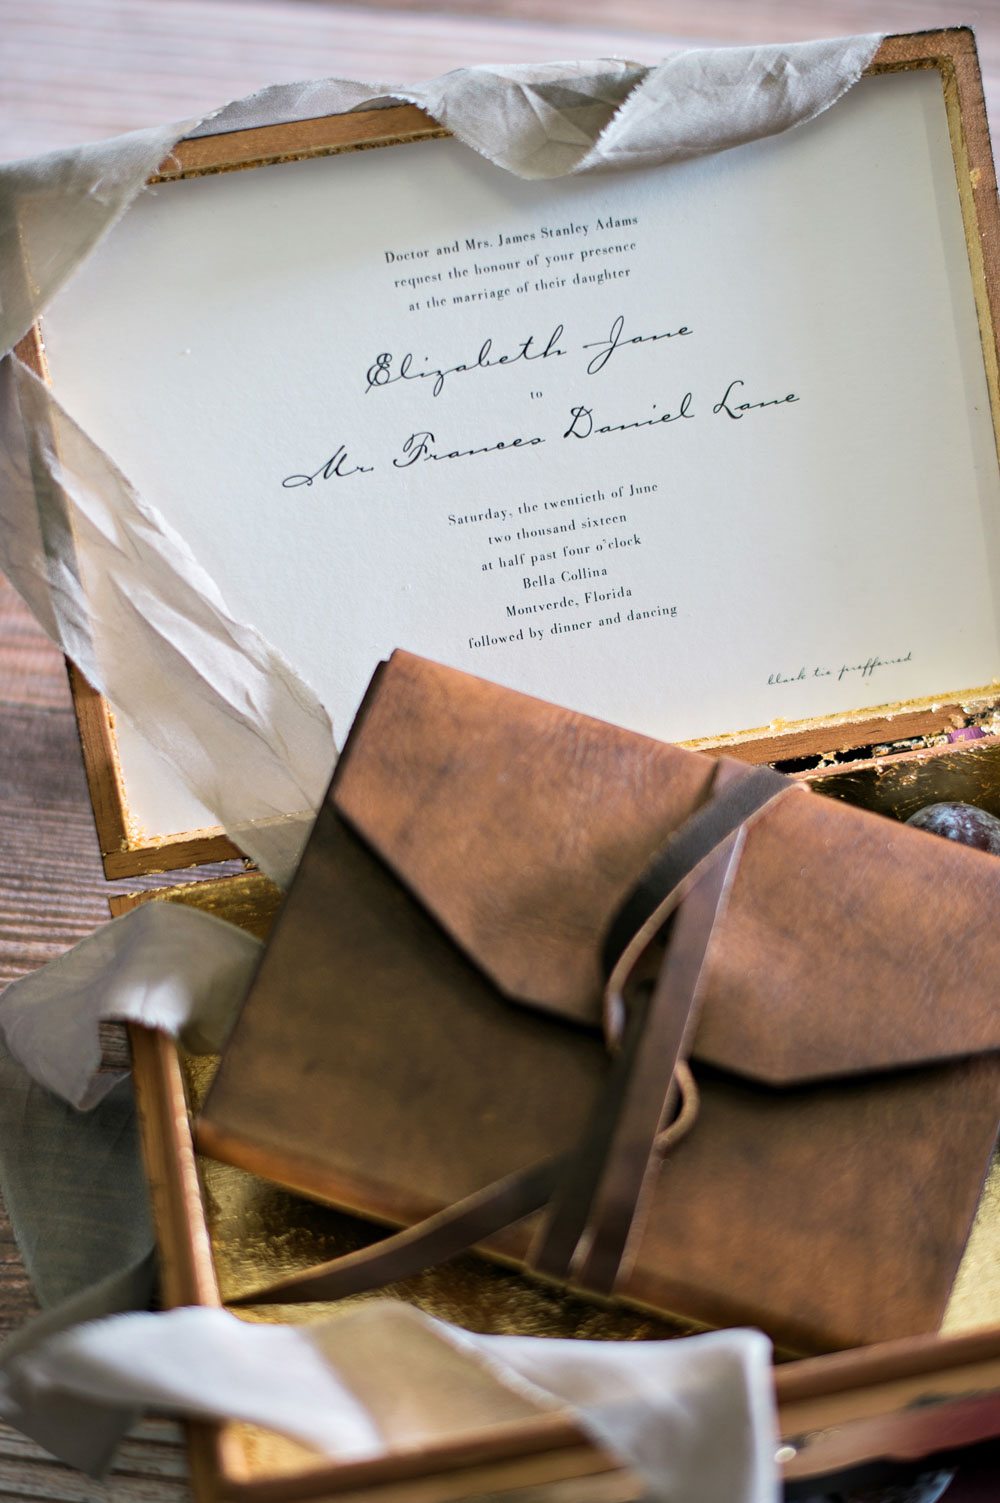 Doctor and Mrs. James Stanley Adams
request the honour of your presence
at the marriage of their daughter
Elizabeth Jane
to
Mr. Frances Daniel Lane
Saturday, the twentieth of June
two thousand sixteen
at half past four o'clock
Bella Collina
Montverde, Florida
followed by dinner and dancing
black tie prefferred